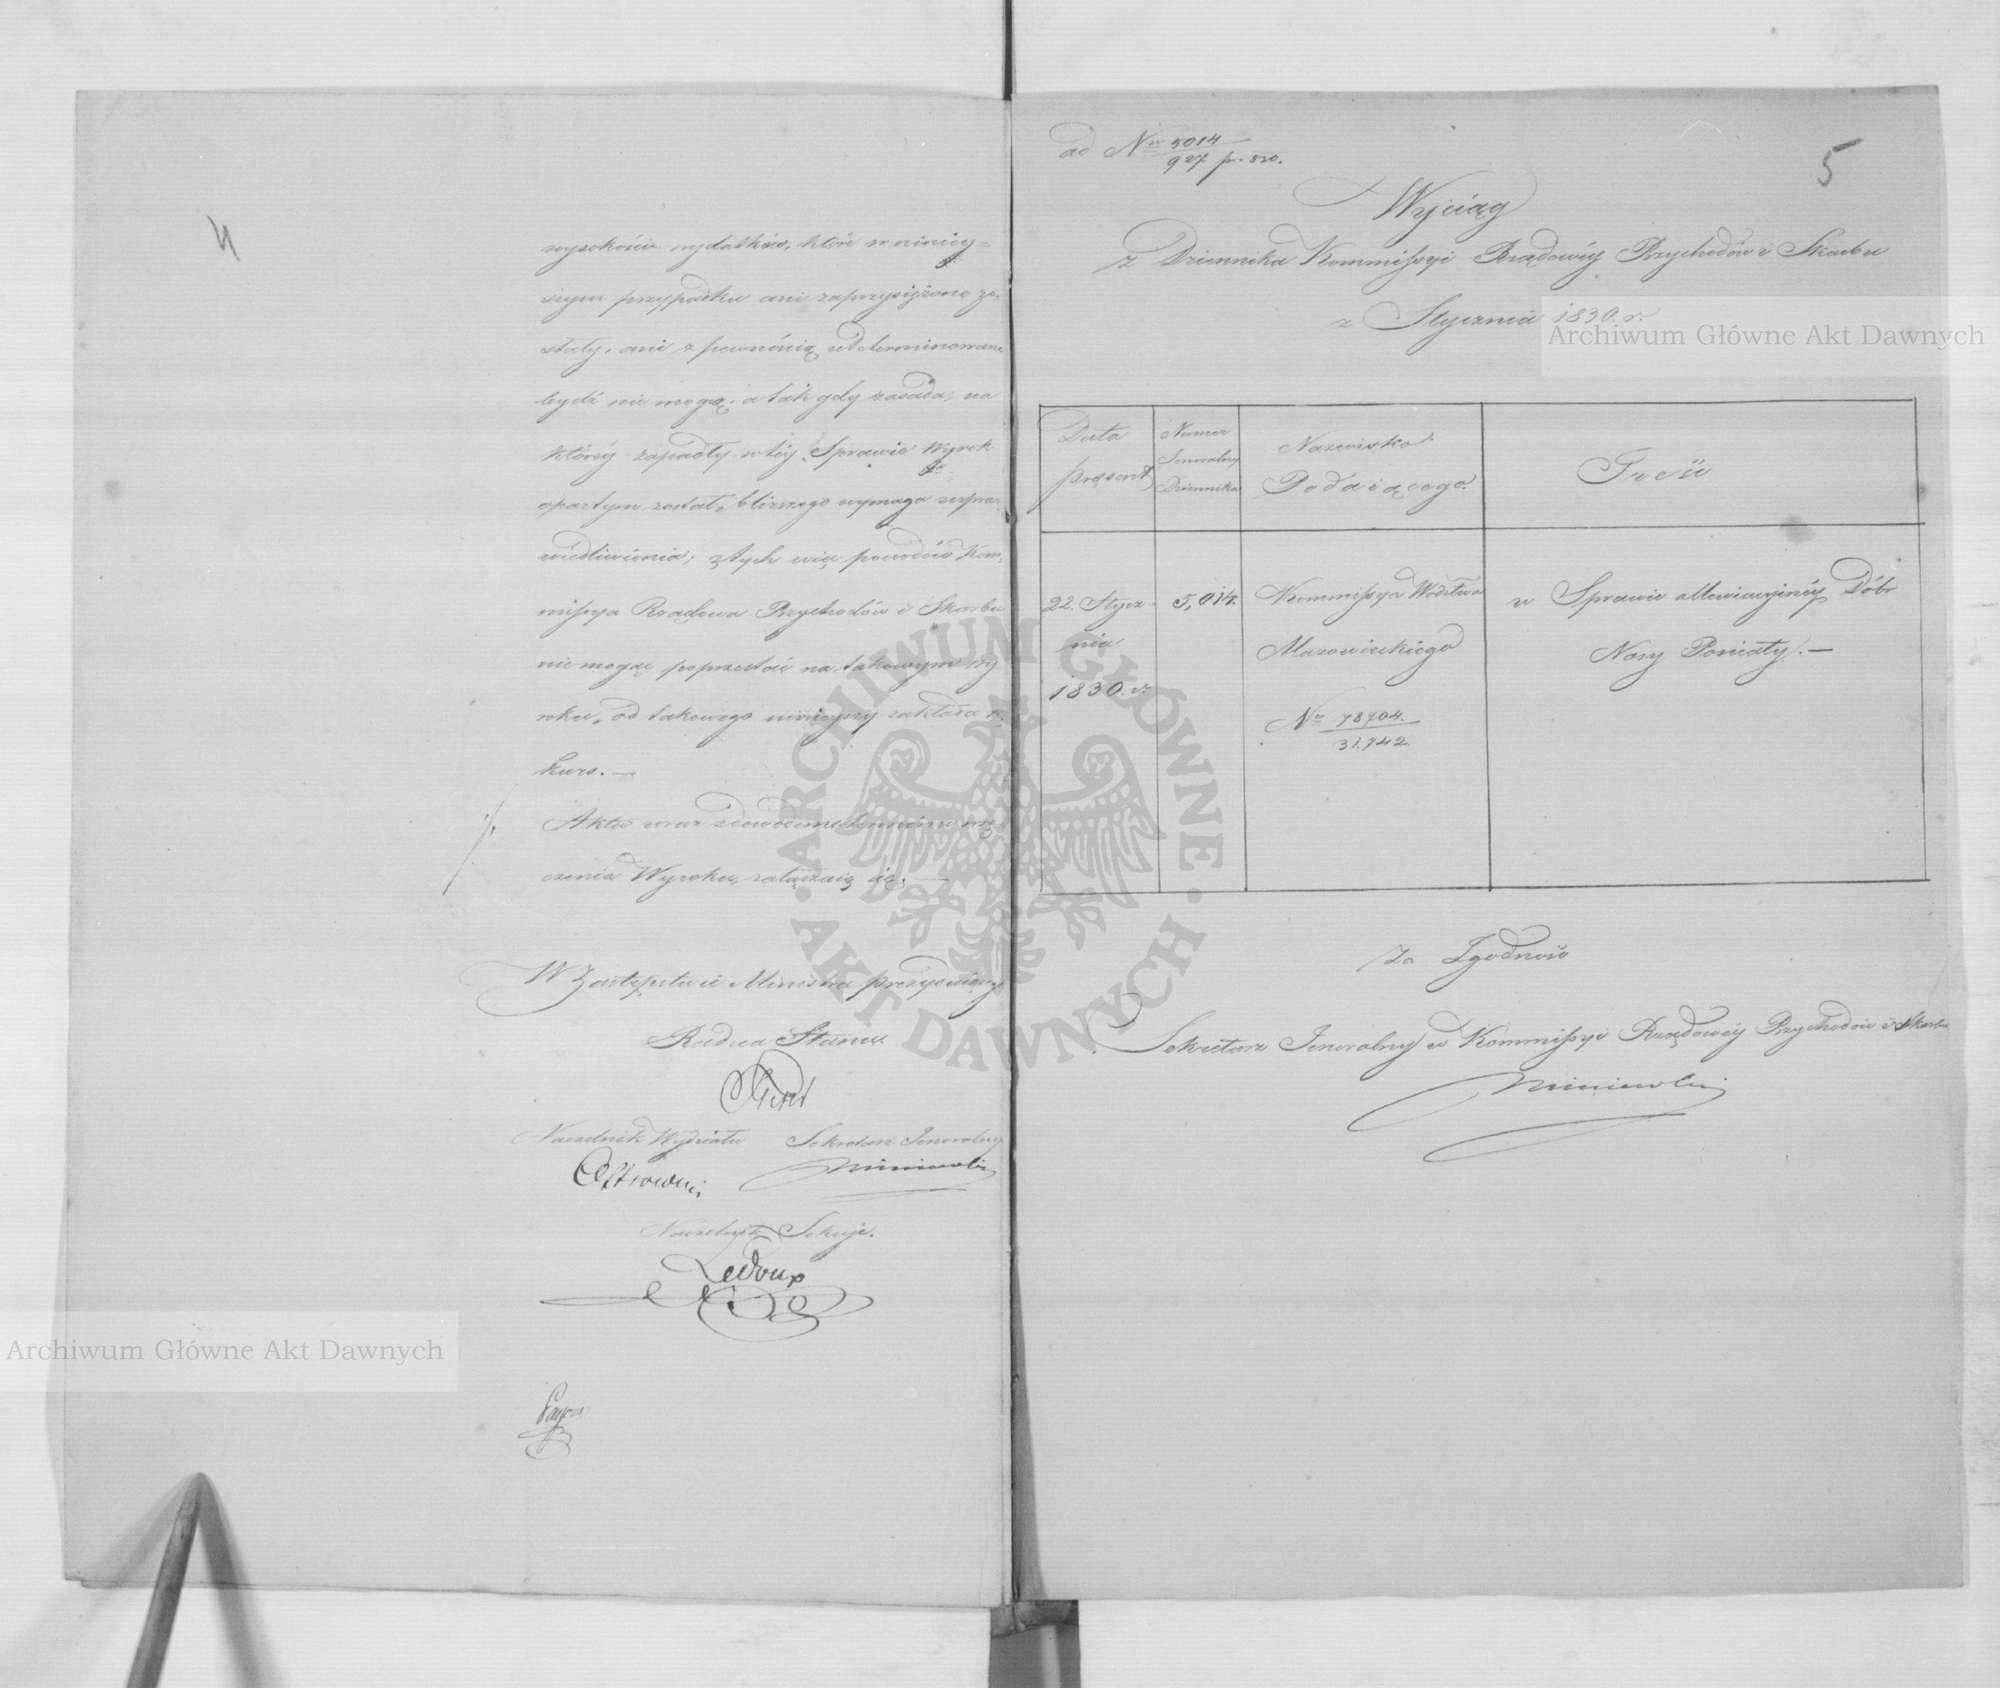 wysokości wydatków, które w niniey=
szym przypadku ani zaprzysiężone zo=
stały, ani z pewnością udeterminowane
bydź nie mogą; a tak gdy zasada, na
któréy zapadły w téy Sprawie Wyrok
opartym został, bliższego wymaga uspra=
wiedliwienia; z tych więc powodów Kom=
missya Rządowa Przychodów i Skarbu
nie mogąc poprzestać na takowym Wy
roku, od takowego niniejszy zakłada re
kurs. —
Akta wraz z dowodem
czenia Wyroku, załączają się; —
W Zastępstwie Ministra Prezydującego
Radca Stanu
Naczelnik Wydziału Sekretarz Jeneralny
Naczelnik Sekcyi.
Ledoux
ad Nr 5014
927 pr. 830.
5
Wyciąg
z Dziennika Kommissyi Rządowéy Przychodów i Skarbu
z Stycznia 1830. r.
Data
present
Numer
Jeneralny
Dziennika
Nazwisko
Podaiącego.
Treść
22. Stycz=
nia
1830. r.
5,014.
Kommissya Wodztwa
Mazowieckiego
Nr 78704.
31.742.
w Sprawie allewiacyjnéy Dóbr
Nosy Poniaty. —
Za Zgodność
Sekretarz Jeneralny w Kommissyi Rządowéy Przychodów i Skarbu
Archiwum Główne Akt Dawnych
Archiwum Główne Akt Dawnych
ARCHIWUM GŁÓWNE
AKT DAWNYCH